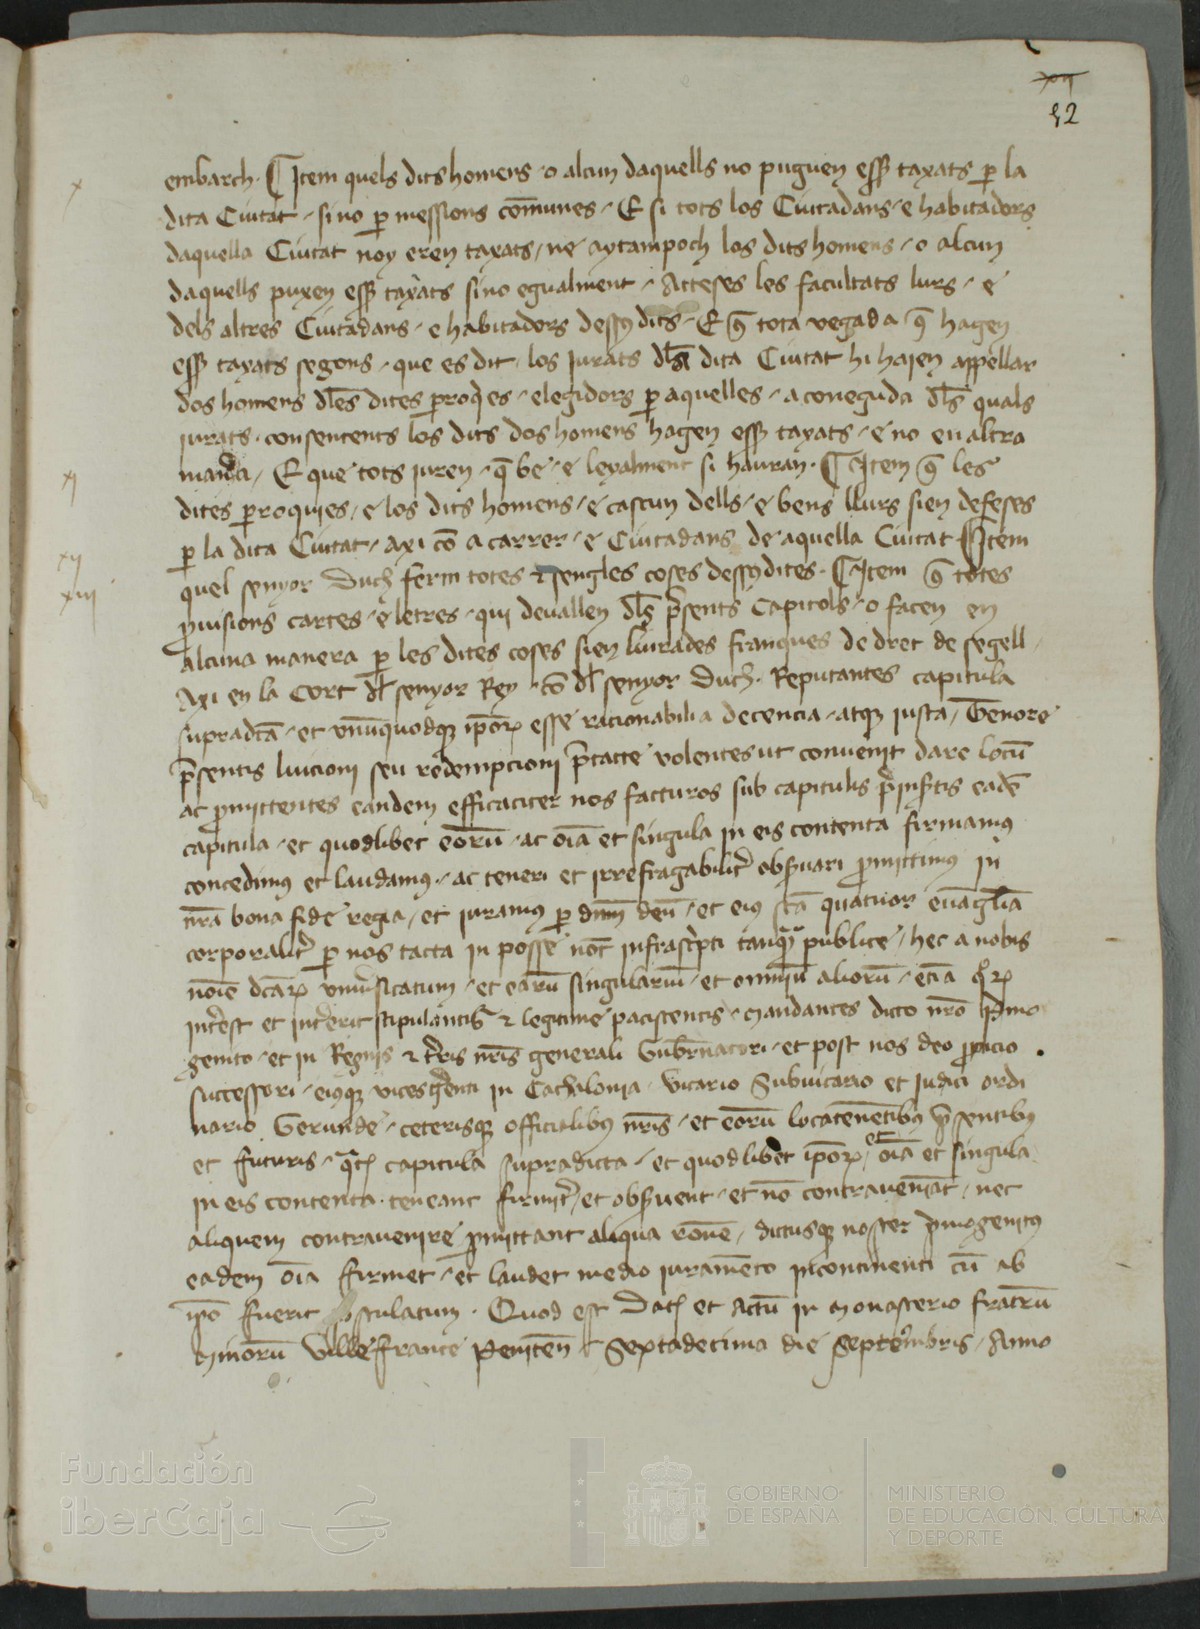 xvij
52
x
embarch· ¶ Item quels dits homens o alcun daquells no puguen ess̃ taxats ꝑ la
dita Ciutat / sino ꝑ messions com̃unes / E si tots los Ciutadans / e habitadors
daquella Ciutat noy eren taxats / ne aytampoch los dits homens / o alcun
daquells puxen ess̃ taxats sino egualment / Atteses les facultats lurs / e
dels altres Ciutadans / e habitadors dessꝯdits / E q̃ tota vegada q̃ hagen
ess̃ taxats segons / que es dit / los jurats dl̃a dita Ciutat hi hajen appellar
dos homens dl̃es dites ꝑroq̃es / elegidors ꝑ aquelles / a coneguda dl̃s quals
jurats· consentents los dits dos homens hagen ess̃ taxats / e no en altra
man̾a / E que tots juren / q̃ be / e leyalment si hauran· ¶ Item q̃ les
xj
dites ꝑroquies / e los dits homens / e cascun dells / e bens llurs sien defeses
ꝑ la dita Ciutat / axi cõ a carrer / e Ciutadans de aquella Ciutat ¶ Item
xij
quel senyor Duch ferm totes & sengles coses dessꝯdites· ¶ Item q̃ totes
xiij
ꝓuisions cartes / e letres / qui deuallen dl̃s p̃sents Capitols / o facen en
alcuna manera ꝑ les dites coses sien liurades franques de dret de segell /
Axi en la Cort dl̃ senyor Rey / cõ dl̃ senyor Duch· Reputantes capitula
supradcã / et vnũquodqꝫ ip̃oꝝ esse racionabilia decencia / atqꝫ justa / Tenore
p̃sentis luicioni seu redempcioni p̃tacte volentes ut conuenit dare locũ
ac ꝓmittentes eandem efficaciter nos facturos sub capitulis p̃insertis eadẽ
capitula / et quodlibet eorũ / ac oĩa et singula in eis contenta firmamꝰ
concedimꝰ et laudamꝰ / ac teneri et irrefragabilit̾ obs̾uari ꝓmittimꝰ in
nr̃a bona fide regia / et juramꝰ ꝑ dñm deũ / et eiꝰ sc̃a quatuor euãgl̃ia
corporalit̾ ꝑ nos tacta in posse not̾ infrasc̾pti tanq̃ᵃ publice / hec a nobis
noĩe dcãꝝ vniu̾sitatum / et earũ singulariũ / et omniũ aliorũ / eciã qͦꝝ
int̾est et int̾erit stipulantis & legitime paciscentis / Mandantes dicto nr̃o p̾mo
genito / et in Regnis & t̾ris nr̃is generali Gub̾natori / et post nos deo ꝓpicio
successori / eiusqꝫ vicesg̾enti in Cathalonia / Vicario Subuicario et judici ordi
nario Gerunde / ceterisqꝫ officialibꝰ nr̃is / et eorũ locatenẽtibꝰ p̃sentibꝰ
et futuris / qᵃtꝰ capitula supradicta / et quodlibet ip̃oꝝ / et oĩa et singula
in eis contenta· teneant firmit̾ / et obs̾uent / et nõ contraueniãt / nec
aliquem contrauenire ꝓmittant aliqua rõne / dictusqꝫ noster p̾mogenitꝰ
eadem oĩa firmet / et laudet medio juramẽto incontinenti cũ ab
ip̃o fuerit postulatum· Quod est Datꝰ et Actũ in Monasterio fratrũ
Minorũ Villeffrance Peniteñ Septadecima die Septẽbris / Anno
Fundación
iberCaja
GOBIERNO
DE ESPAÑA
MINISTERIO
DE EDUCACIÓN, CULTURA
Y DEPORTE